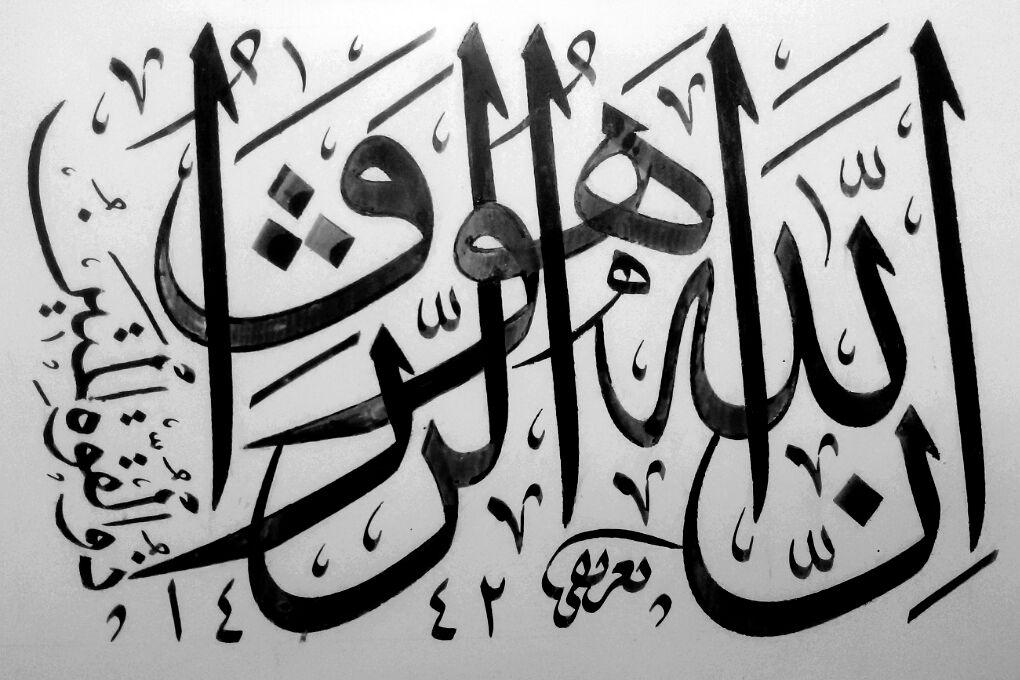 إِنَّ اللَّهَ هُوَ الرَّزَّاقُ
ذُو الْقُوَّةِ الْمَتِينُ
١٤٤٢